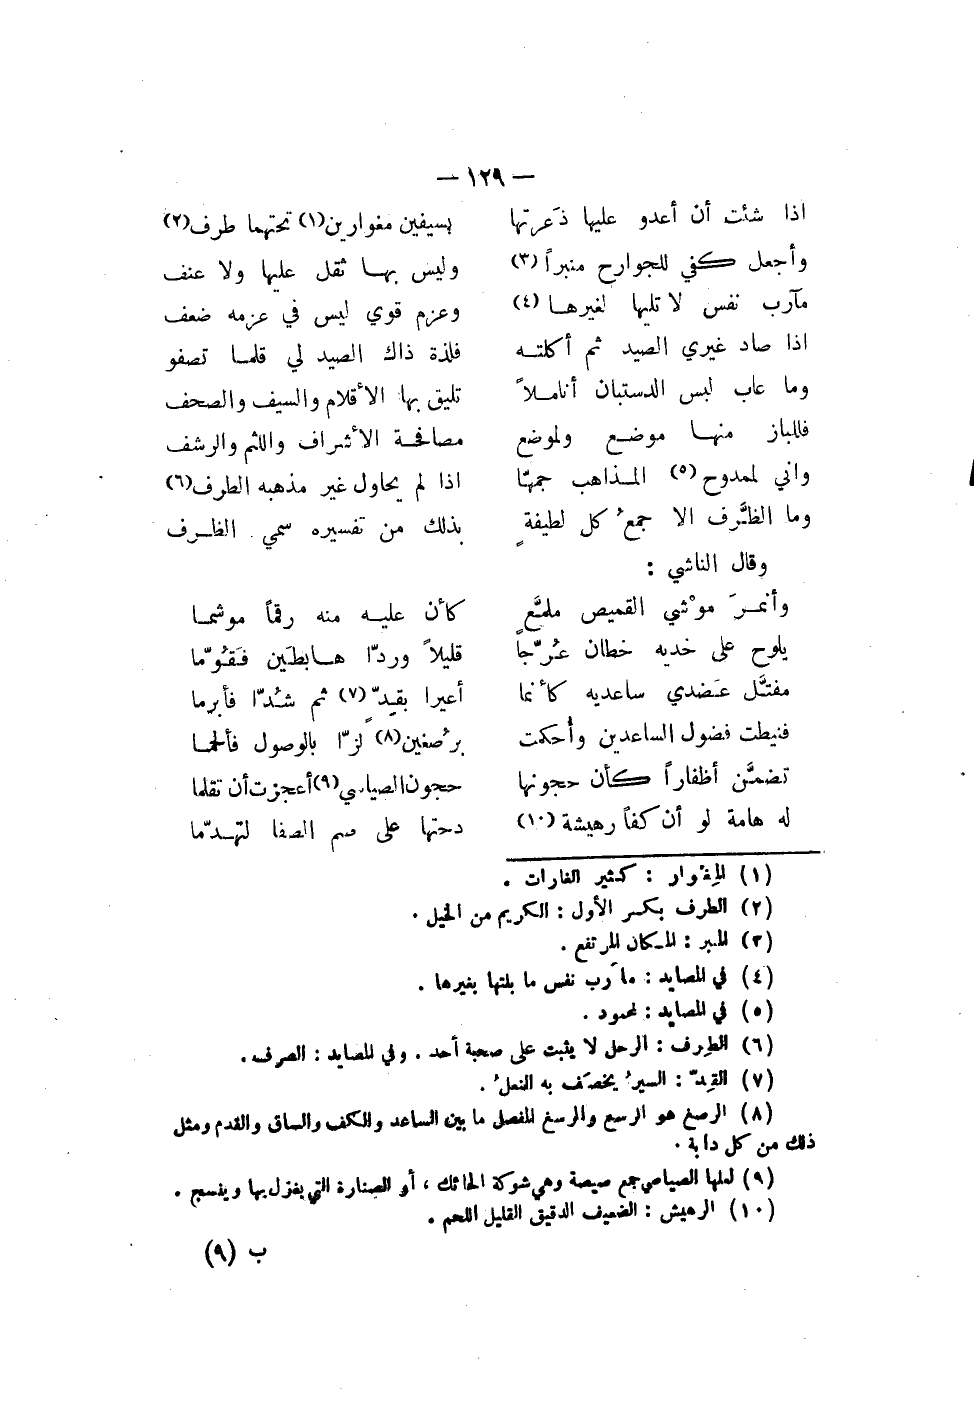 — ١٢٩ —
اذا شئت أن أعدو عليها ذَعرتها بسيفين مغوارين(١) تحتهما طرف(٢)
وأجعل كفي للجوارح منبراً (٣) وليس بها ثقل عليها ولا عنف
مآرب نفس لا تليها لغيرها (٤) وعزم قوي ليس في عزمه ضعف
اذا صاد غيري الصيد ثم أكلته فلذة ذاك الصيد لي قلما تصفو
وما عاب لبس الدستبان أناملاً تليق بها الأقلام والسيف والصحف
فللباز منها موضع ولموضع مصافحة الأشراف واللثم والرشف
واني لممدوح (٥) المذاهب جمّها اذا لم يحاول غير مذهبه الطرف(٦)
وما الظَّرف الا جمعُ كل لطيفةٍ بذلك من تفسيره سمي الظرف
وقال الناشي :
وأنمرَ موْشي القميص ملمَّعٍ كأن عليه منه رقماً موشما
يلوح على خديه خطان عُرّجاً قليلاً وردّا هابطَين فَقُوّما
مفتَّل عَضدي ساعديه كأنما أعيرا بقيدّ (٧) ثم شُدّا فأبرما
فنيطت فضول الساعدين وأُحكمت برُصغين(٨) لزّا بالوصول فألحما
تضمَّن أظفاراً كأن حجونها حجون الصياصي(٩) أعجزت أن تقلما
له هامة لو أن كفاً رهيشة (١٠) دحتها على صم الصفا لتهدّما
(١) المِغْوار : كثير الغارات .
(٢) الطرف بكسر الأول : الكريم من الخيل .
(٣) المنبر : المكان المرتفع .
(٤) في المصايد : مآرب نفس ما بلتها بغيرها .
(٥) في المصايد : لمحمود .
(٦) الطرِف : الرجل لا يثبت على صحبة أحد . وفي المصايد : الصرف .
(٧) القِدّ : السيرُ يخصَف به النعلُ .
(٨) الرصغ هو الرسغ والرسغ المفصل ما بين الساعد والكف والساق والقدم ومثل
ذلك من كل دابة .
(٩) لعلها الصياصي جمع صيصة وهي شوكة الحائك ، أو الصنارة التي يغزل بها وينسج .
(١٠) الرهيش : الضعيف الدقيق القليل اللحم .
ب (٩)